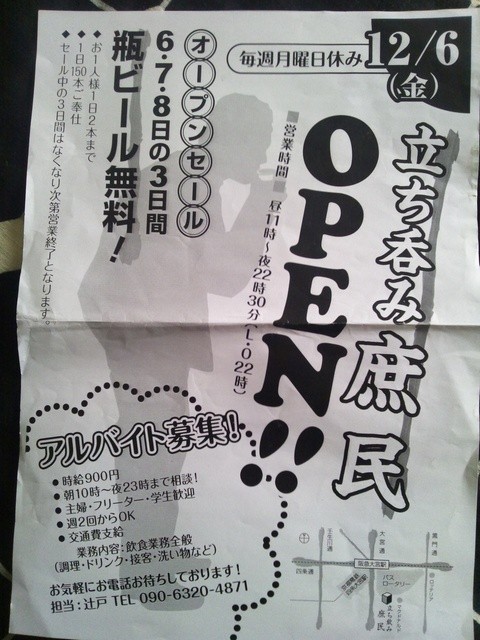 12/6
(金)
毎週月曜日休み
立ち呑み庶民
OPEN!!
営業時間 昼11時〜夜22時30分(L・O22時)
オープンセール
6・7・8日の3日間
瓶ビール無料!
◆お1人様1日2本まで
◆1日150本ご奉仕
◆セール中の3日間はなくなり次第営業終了となります。
アルバイト募集!
●時給900円
●朝10時〜夜23時まで相談!
●主婦・フリーター・学生歓迎
●週2回からOK
●交通費支給
業務内容:飲食業務全般
(調理・ドリンク・接客・洗い物など)
お気軽にお電話お待ちしております!
担当:辻戸 TEL 090-6320-4871
壬生川通
大宮通
黒門通
四条通
阪急大宮駅
バス
ロータリー
立ち飲み
庶民